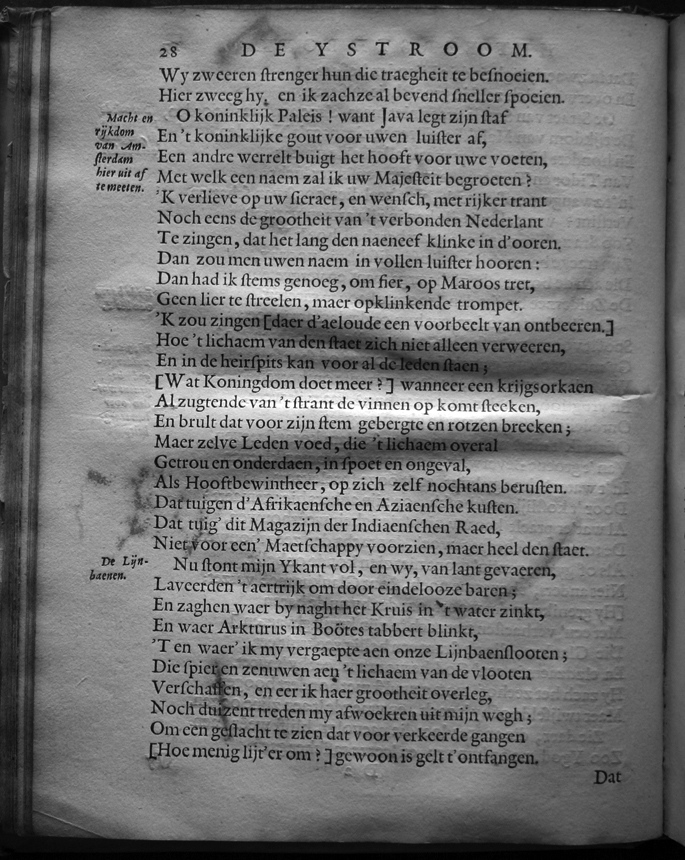 28 DE YSTROOM.
Wy zweeren ſtrenger hun die traegheit te beſnoeien.
Hier zweeg hy, en ik zachze al bevend ſneller ſpoeien.
O koninklijk Paleis ! want Java legt zijn ſtaf
Macht en
rijkdom
van Am-
ſterdam
hier uit af
te meeten.
En 't koninklijke gout voor uwen luiſter af,
Een andre werrelt buigt het hooft voor uwe voeten,
Met welk een naem zal ik uw Majeſteit begroeten ?
'K verlieve op uw ſieraet, en wenſch, met rijker trant
Noch eens de grootheit van 't verbonden Nederlant
Te zingen, dat het lang den naeneef klinke in d'ooren.
Dan zou men uwen naem in vollen luiſter hooren :
Dan had ik ſtems genoeg, om fier, op Maroos tret,
Geen lier te ſtreelen, maer opklinkende trompet.
'K zou zingen [daer d'aeloude een voorbeelt van ontbeeren.]
Hoe 't lichaem van den ſtaet zich niet alleen verweeren,
En in de heirſpits kan voor al de leden ſtaen ;
[Wat Koningdom doet meer ?] wanneer een krijgsorkaen
Al zugtende van 't ſtrant de vinnen op komt ſteeken,
En brult dat voor zijn ſtem gebergte en rotzen breeken ;
Maer zelve Leden voed, die 't lichaem overal
Getrou en onderdaen, in ſpoet en ongeval,
Als Hooftbewintheer, op zich zelf nochtans beruſten.
Dat tuigen d'Afrikaenſche en Aziaenſche kuſten.
Dat tuig' dit Magazijn der Indiaenſchen Raed,
Niet voor een' Maetſchappy voorzien, maer heel den ſtaet.
De Lijn-
baenen.
Nu ſtont mijn Ykant vol, en wy, van lant gevaeren,
Laveerden 't aertrijk om door eindelooze baren ;
En zaghen waer by naght het Kruis in 't water zinkt,
En waer Arkturus in Boötes tabbert blinkt,
'T en waer' ik my vergaepte aen onze Lijnbaenſlooten ;
Die ſpier en zenuwen aen 't lichaem van de vlooten
Verſchaffen, en eer ik haer grootheit overleg,
Noch duizent treden my afwoekren uit mijn wegh ;
Om een geſlacht te zien dat voor verkeerde gangen
[Hoe menig lijt'er om ?] gewoon is gelt t'ontfangen.
Dat